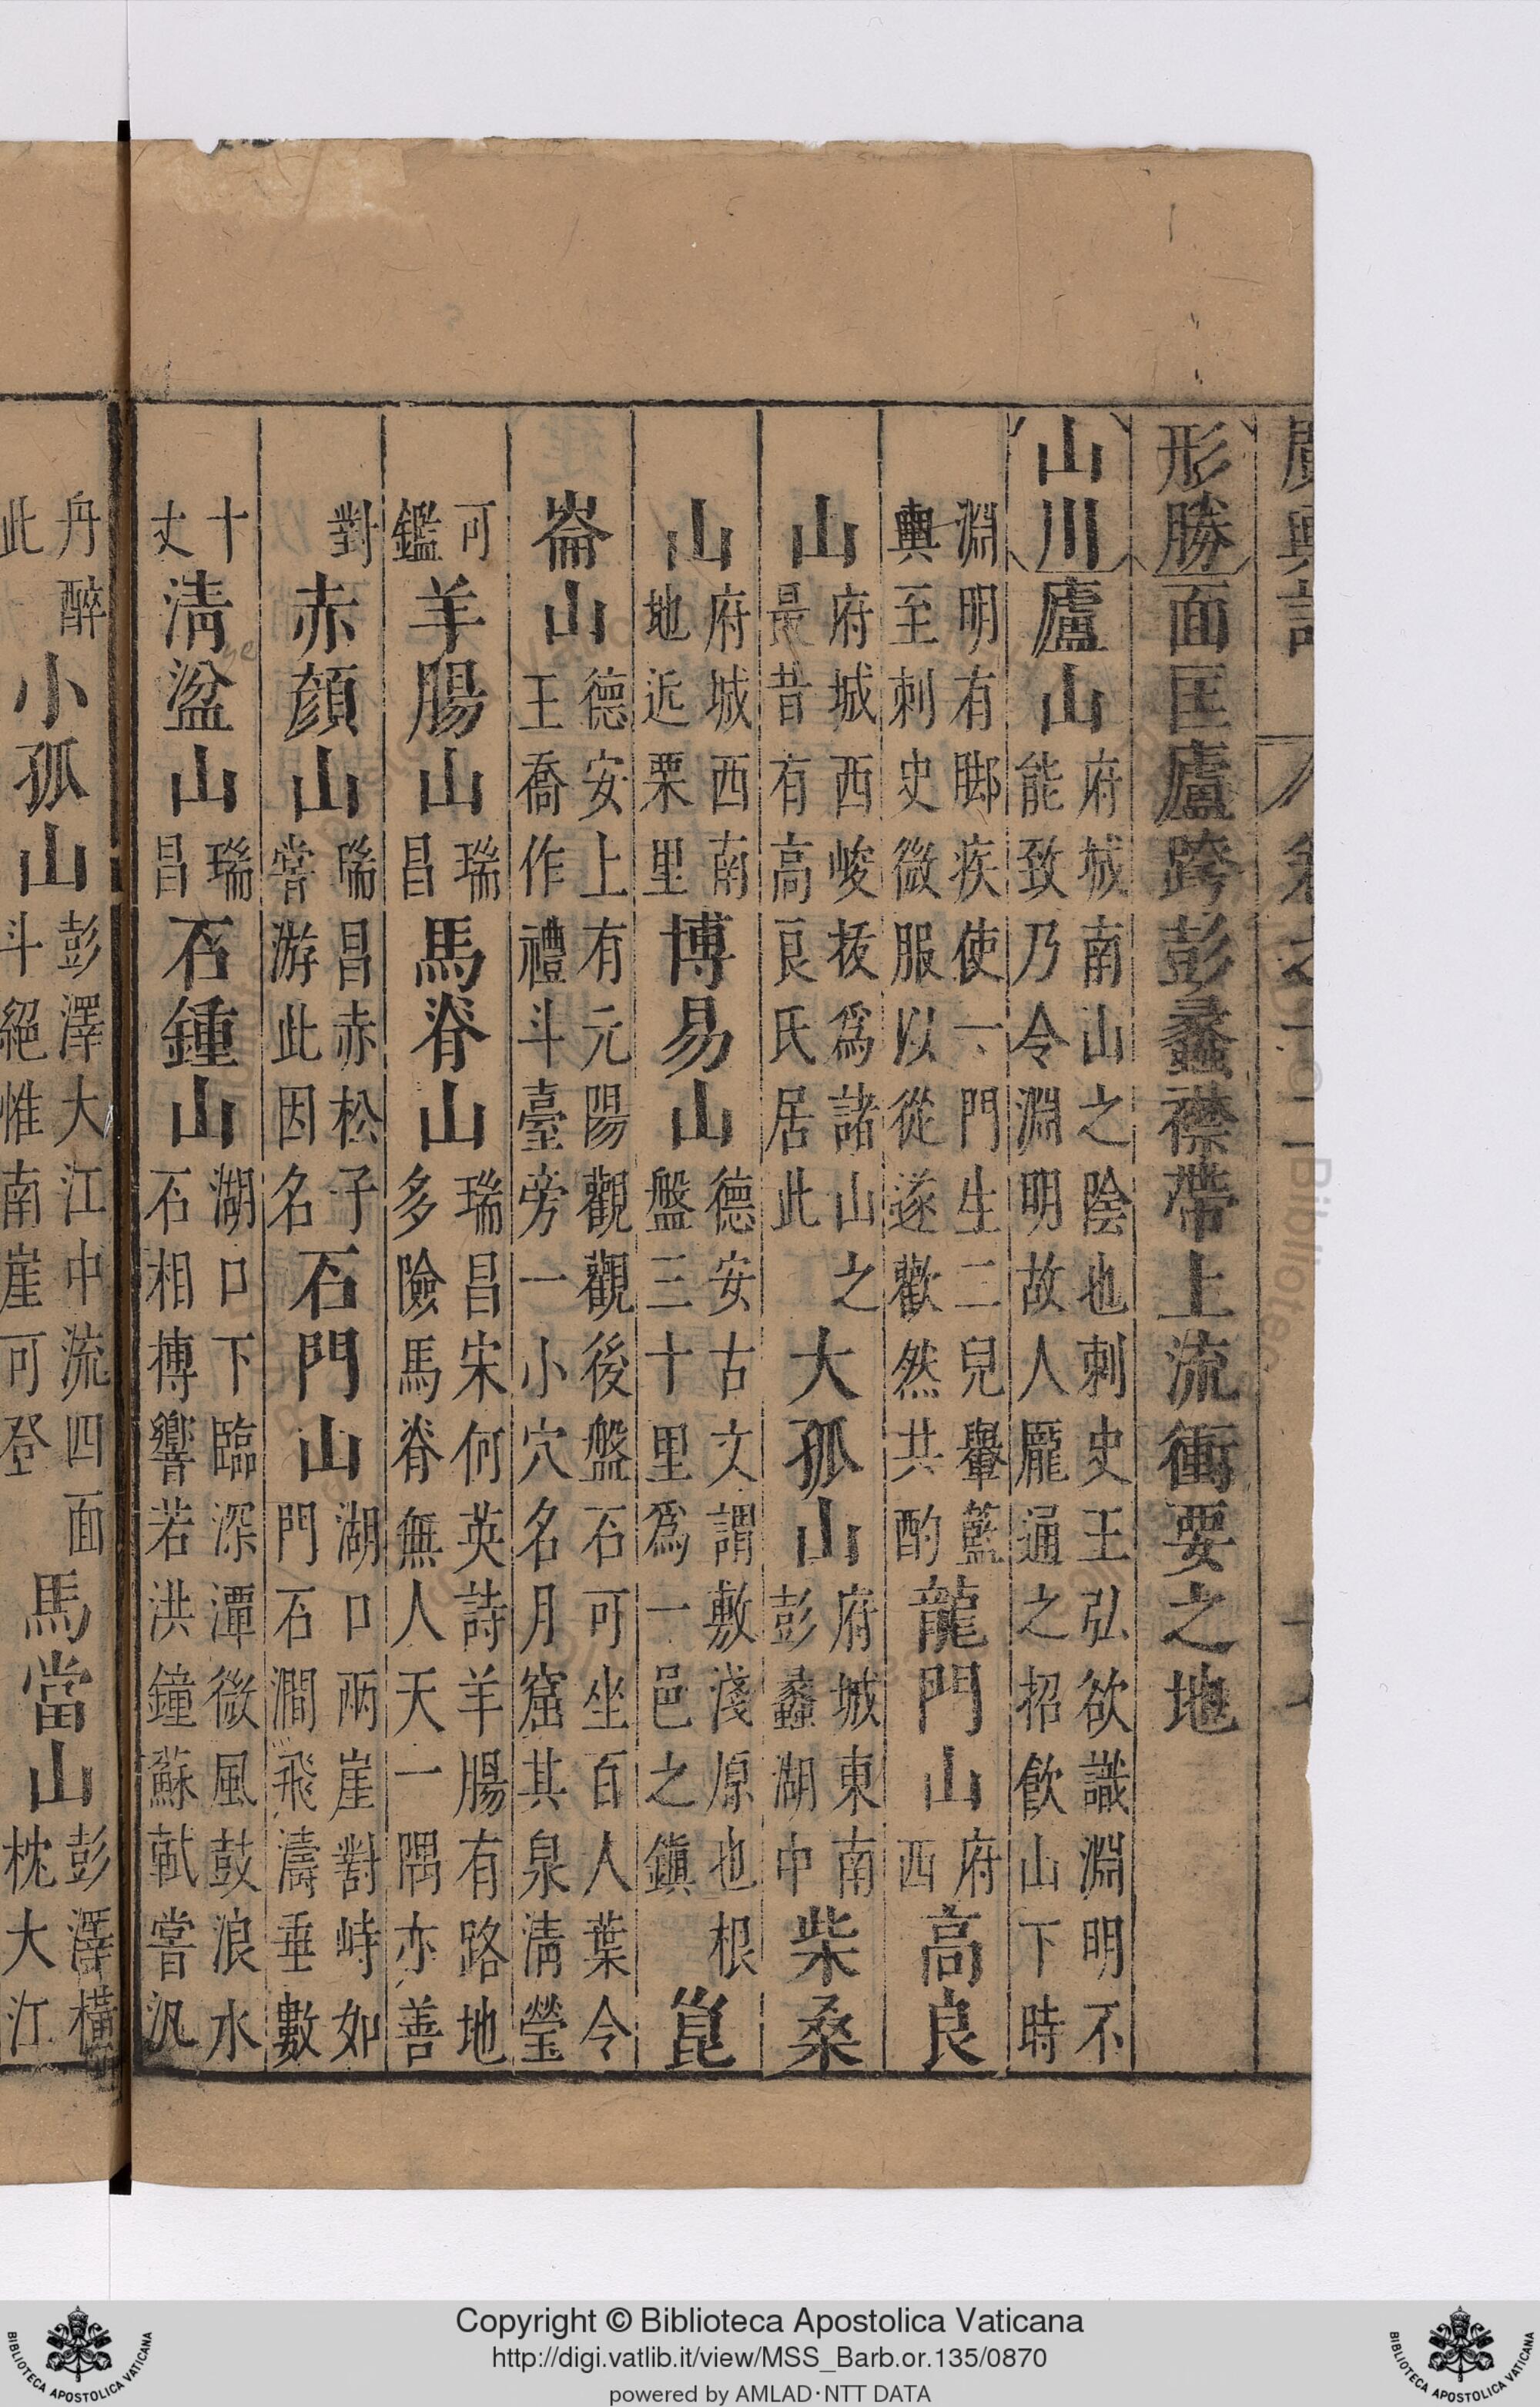 廣輿記 卷之十二
形勝面匡廬跨彭蠡襟帶上流衝要之地
山川廬山府城南山之陰也刺史王弘欲識淵明不能致乃令淵明故人龐通之招飲山下時
淵明有脚疾使一門生二兒轝籃輿至刺史微服以從遂歡然共酌龍門山府西高良
山府城西峻拔爲諸山之最昔有高良氏居此大孤山府城東南彭蠡湖中柴桑
山府城西南地近栗里博易山德安古文謂敷淺原也根盤三十里爲一邑之鎮崑
崙山德安上有元陽觀觀後盤石可坐百人葉令王喬作禮斗臺旁一小穴名月窟其泉清瑩
可鑑羊腸山瑞昌馬脊山瑞昌宋何英詩羊腸有路地多險馬脊無人天一隅亦善
對赤顔山瑞昌赤松子嘗游此因名石門山湖口兩崖對峙如門石澗飛濤垂數
十丈清湓山瑞昌石鍾山湖口下臨深潭微風鼓浪水石相搏響若洪鐘蘇軾嘗汎
舟醉此小孤山彭澤大江中流四面斗絕惟南崖可登馬當山彭澤橫枕大江
Copyright © Biblioteca Apostolica Vaticana
http://digi.vatlib.it/view/MSS_Barb.or.135/0870
powered by AMLAD·NTT DATA
BIBLIOTECA APOSTOLICA VATICANA
BIBLIOTECA APOSTOLICA VATICANA